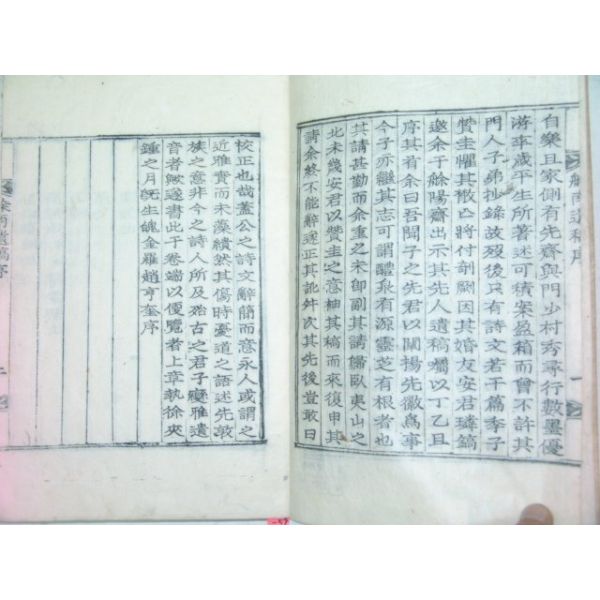 自樂且家側有先齋與門少村秀尋行數墨優
游卒歲平生所著述可積案盈箱而曾不許其
門人子弟抄錄故歿後只有詩文若干篇季子
贊圭懼其散亡將付剞劂因其婚友安君璋鎬
邀余于餘陽齋出示其先人遺稿囑以丁乙且
序其首余曰吾聞子之先君以闡揚先徽爲事
今子亦繼其志可謂醴泉有源靈芝有根者也
其請甚勤而余重之未卽副其請歸臥夷山之
北未幾安君以贊圭之意袖其稿而來復申其
請余終不能辭遂正其訛舛次其先後豈敢曰
南遺稿序
一
校正也哉蓋公之詩文辭簡而意永人或謂之
近雅實而未藻繢然其傷時憂道之語述先敦
族之意非今之詩人所及殆古之君子變雅遺
音者歟遂書此于卷端以俟覽者上章執徐夾
鍾之月旣生魄金羅趙亨奎序
南遺稿序
二